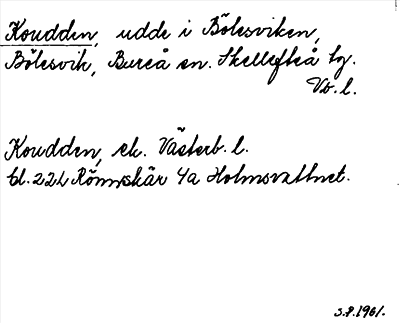 Koudden, udde i Bölesviken,
Bölesvik, Bureå sn. Skellefteå tg.
Vb. l.
Koudden, ek. Västerb. l.
bl. 22L Rönnskär 4a Holmsvattnet.
S.P. 1961.